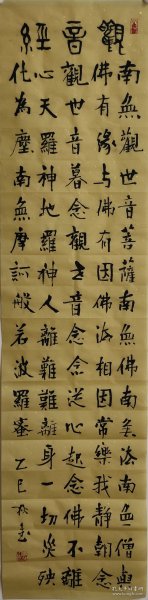 觀音經
南無觀世音菩薩南無佛南無法南無僧與
佛有緣与佛有因佛法相因常樂我靜朝念
觀世音暮念觀世音念念從心起念佛不離
心天羅神地羅神人離難難離身一切災殃
化為塵南無摩訶般若波羅蜜 乙巳